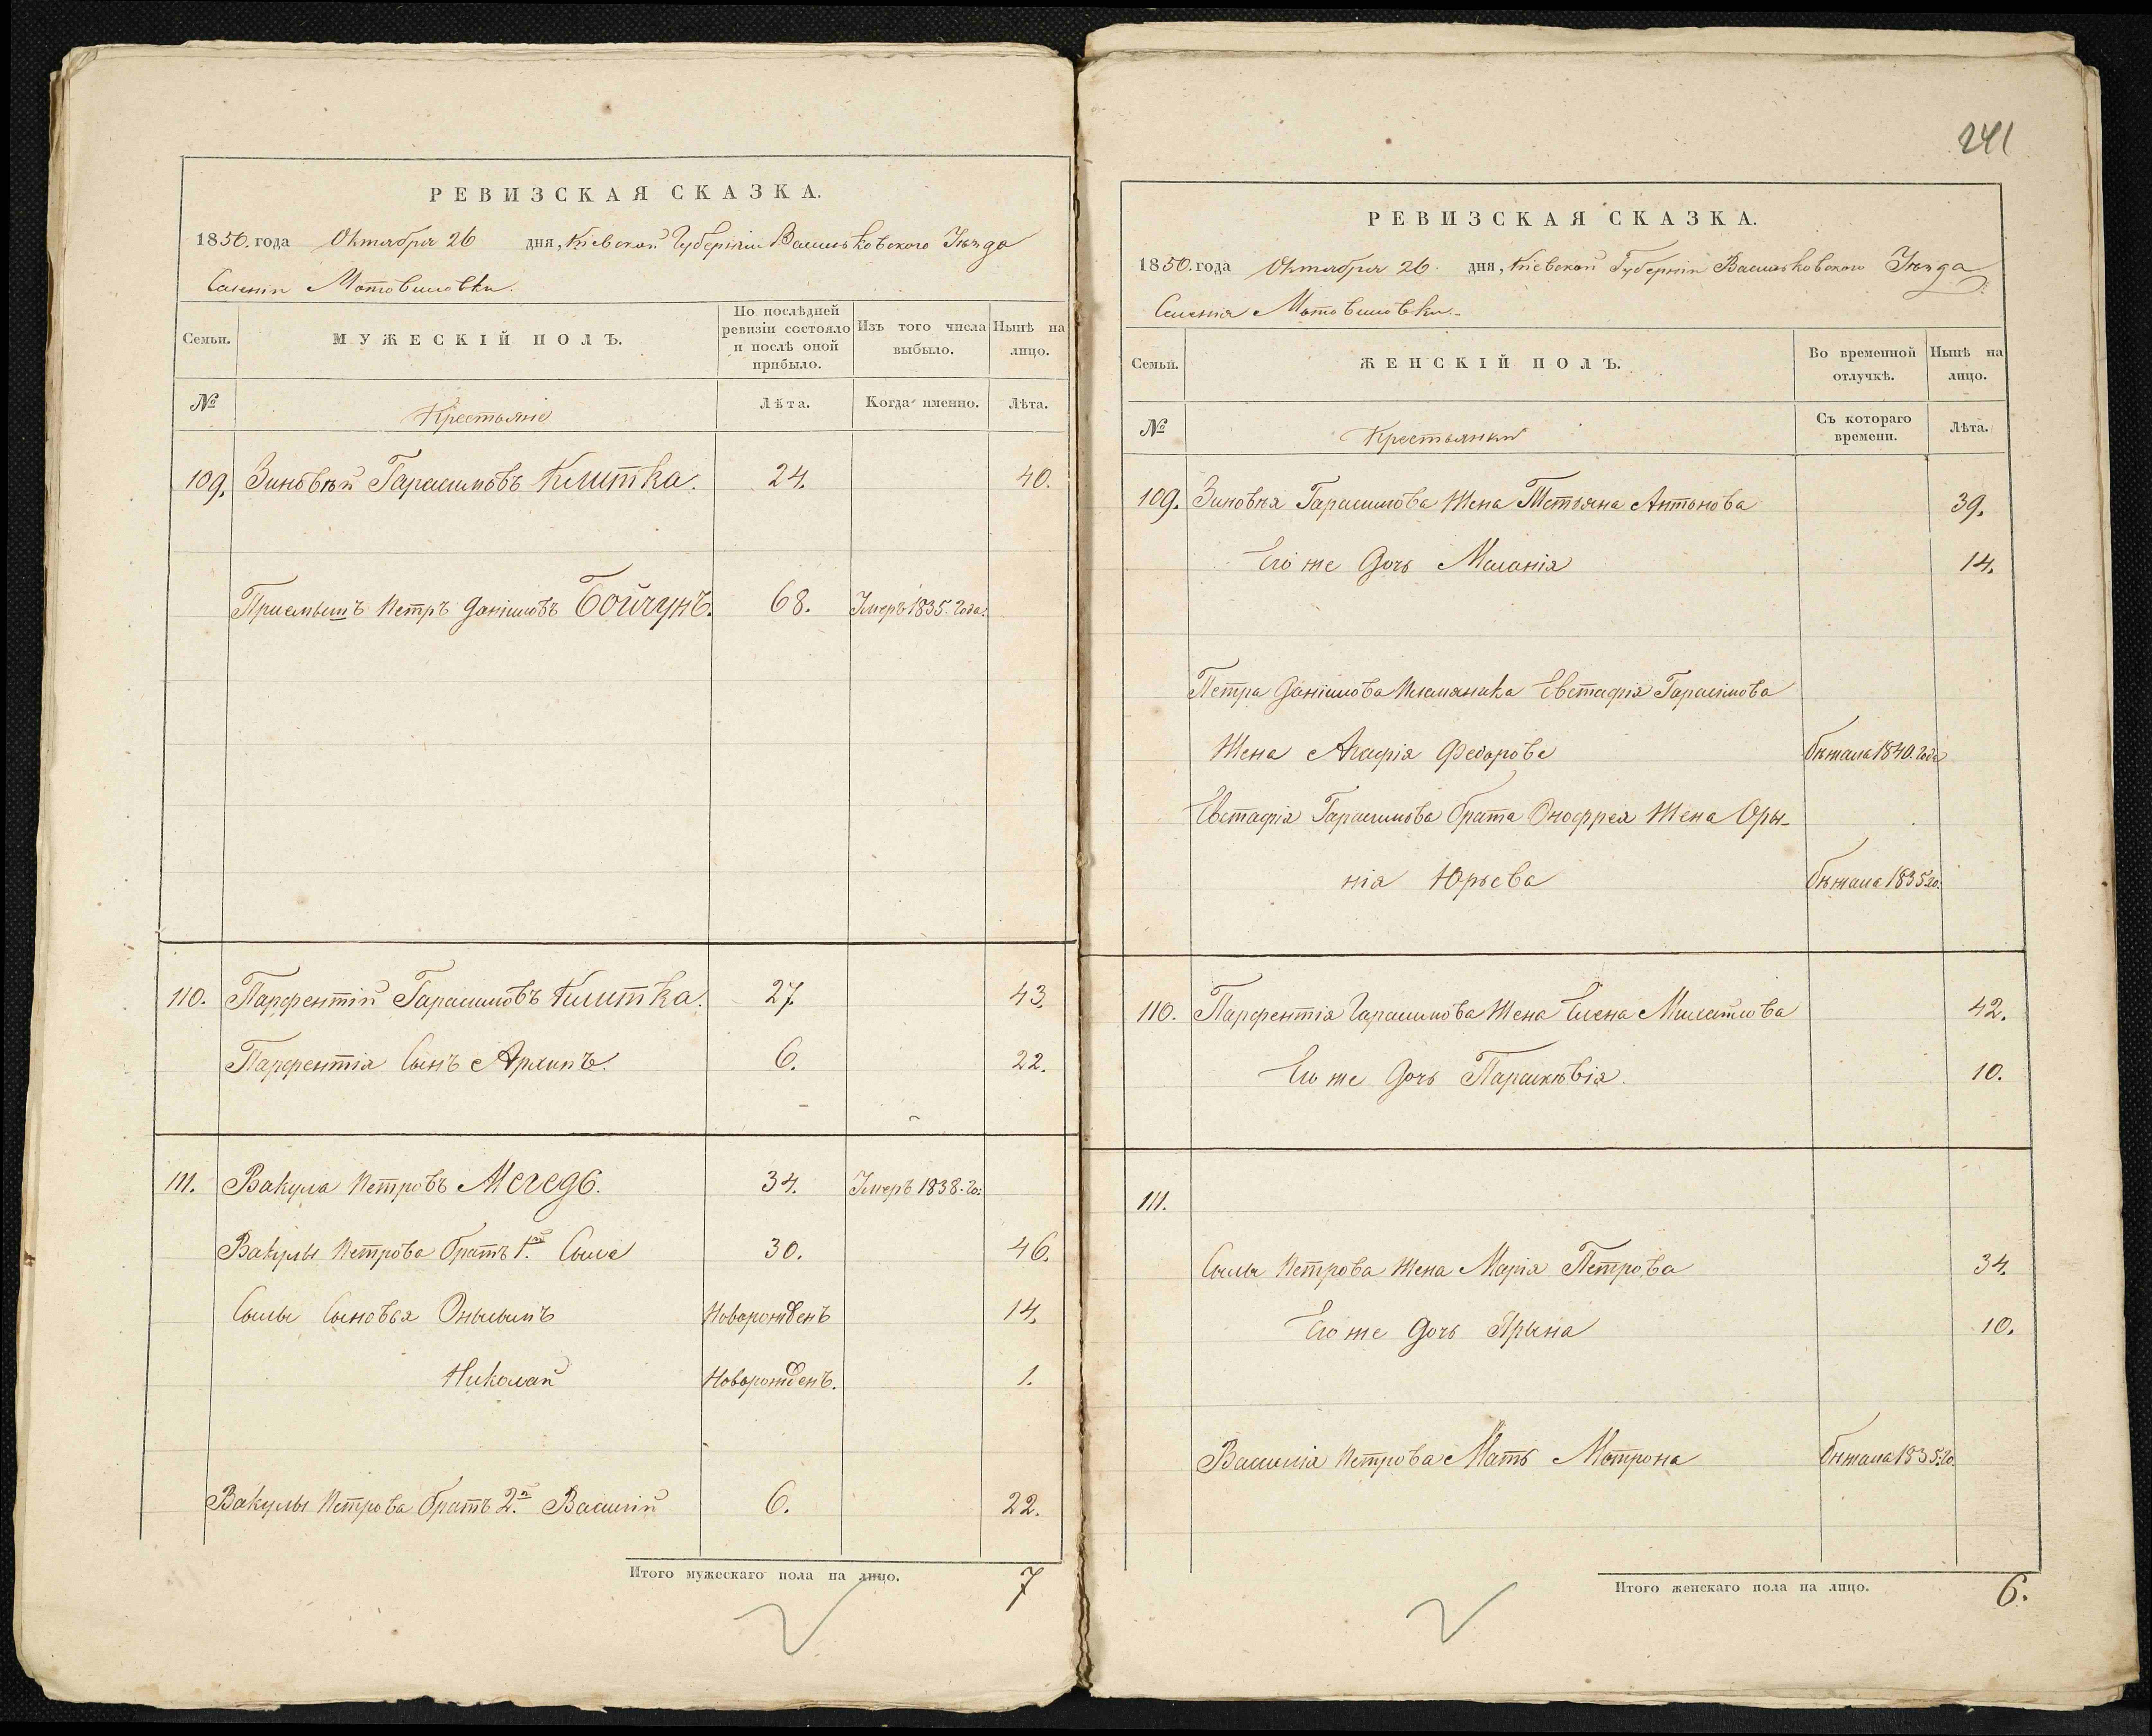 РЕВИЗСКАЯ СКАЗКА.
1850. года Октября 26 дня, Кіевской Губерніи Васильковского Уѣзда
Селенія Мотовиловки.
Семьи. МУЖЕСКІЙ ПОЛЪ. По послѣдней ревизіи состояло и послѣ оной прибыло. Изъ того числа выбыло. Нынѣ на лицо.
№ Крестьяне Лѣта. Когда именно. Лѣта.
109. Зиновѣй Гарасимовъ Клитка. 24. 40.
Приемышъ Петръ Даніиловъ Бойчунъ. 68. Умеръ 1835. года.
110. Парфентій Гарасимовъ Клитка. 27. 43.
Парфентія Сынъ Архипъ. 6. 22.
111. Вакула Петровъ Мегедь. 34. Умеръ 1838. го.
Вакулы Петрова братъ 1.й Сыла 30. 46.
Сылы Сыновья Онысымъ Новорожденъ 14.
Николай Новорожденъ. 1.
Вакулы Петрова братъ 2.й Василій 6. 22.
Итого мужескаго пола на лицо. 7
241
РЕВИЗСКАЯ СКАЗКА.
1850. года Октября 26. дня, Кіевской Губерніи Васильковского Уѣзда
Селенія Мотовиловки.
Семьи. ЖЕНСКІЙ ПОЛЪ. Во временной отлучкѣ. Нынѣ на лицо.
№ Крестьянки Съ котораго времени. Лѣта.
109. Зиновѣя Гарасимова Жена Тетьяна Антонова 39.
Его же Дочь Маланія 14.
Петра Даніилова племяника Евстафія Гарасимова
Жена Агафія Федорова бѣжала 1840. года
Евстафія Гарасимова брата Онофрея Жена Оры-
нія Юрьева бѣжала 1835 го.
110. Парфентія Гарасимова Жена Елена 42.
Его же Дочь Параскѣвія. 10.
111.
Сылы Петрова Жена Марія Петрова 34.
Его же Дочь Ярына 10.
Василія Петрова Мать Мотрона бѣжала 1835. го
Итого женскаго пола на лицо. 6.